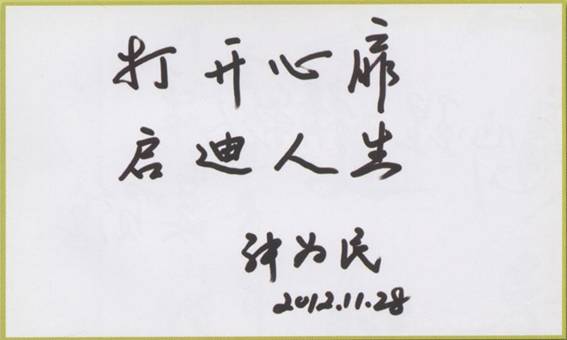 打开心扉
启迪人生
钟为民
2012.11.28